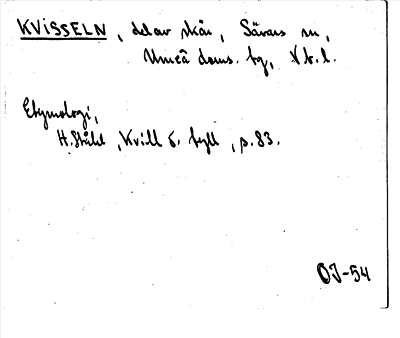 KVISSELN, del av skär, Sävars sn,
Umeå doms. bg, Vb. l.
Etymologi,
H. Ståhl, Kvill o. tyll, p. 83.
OJ-54